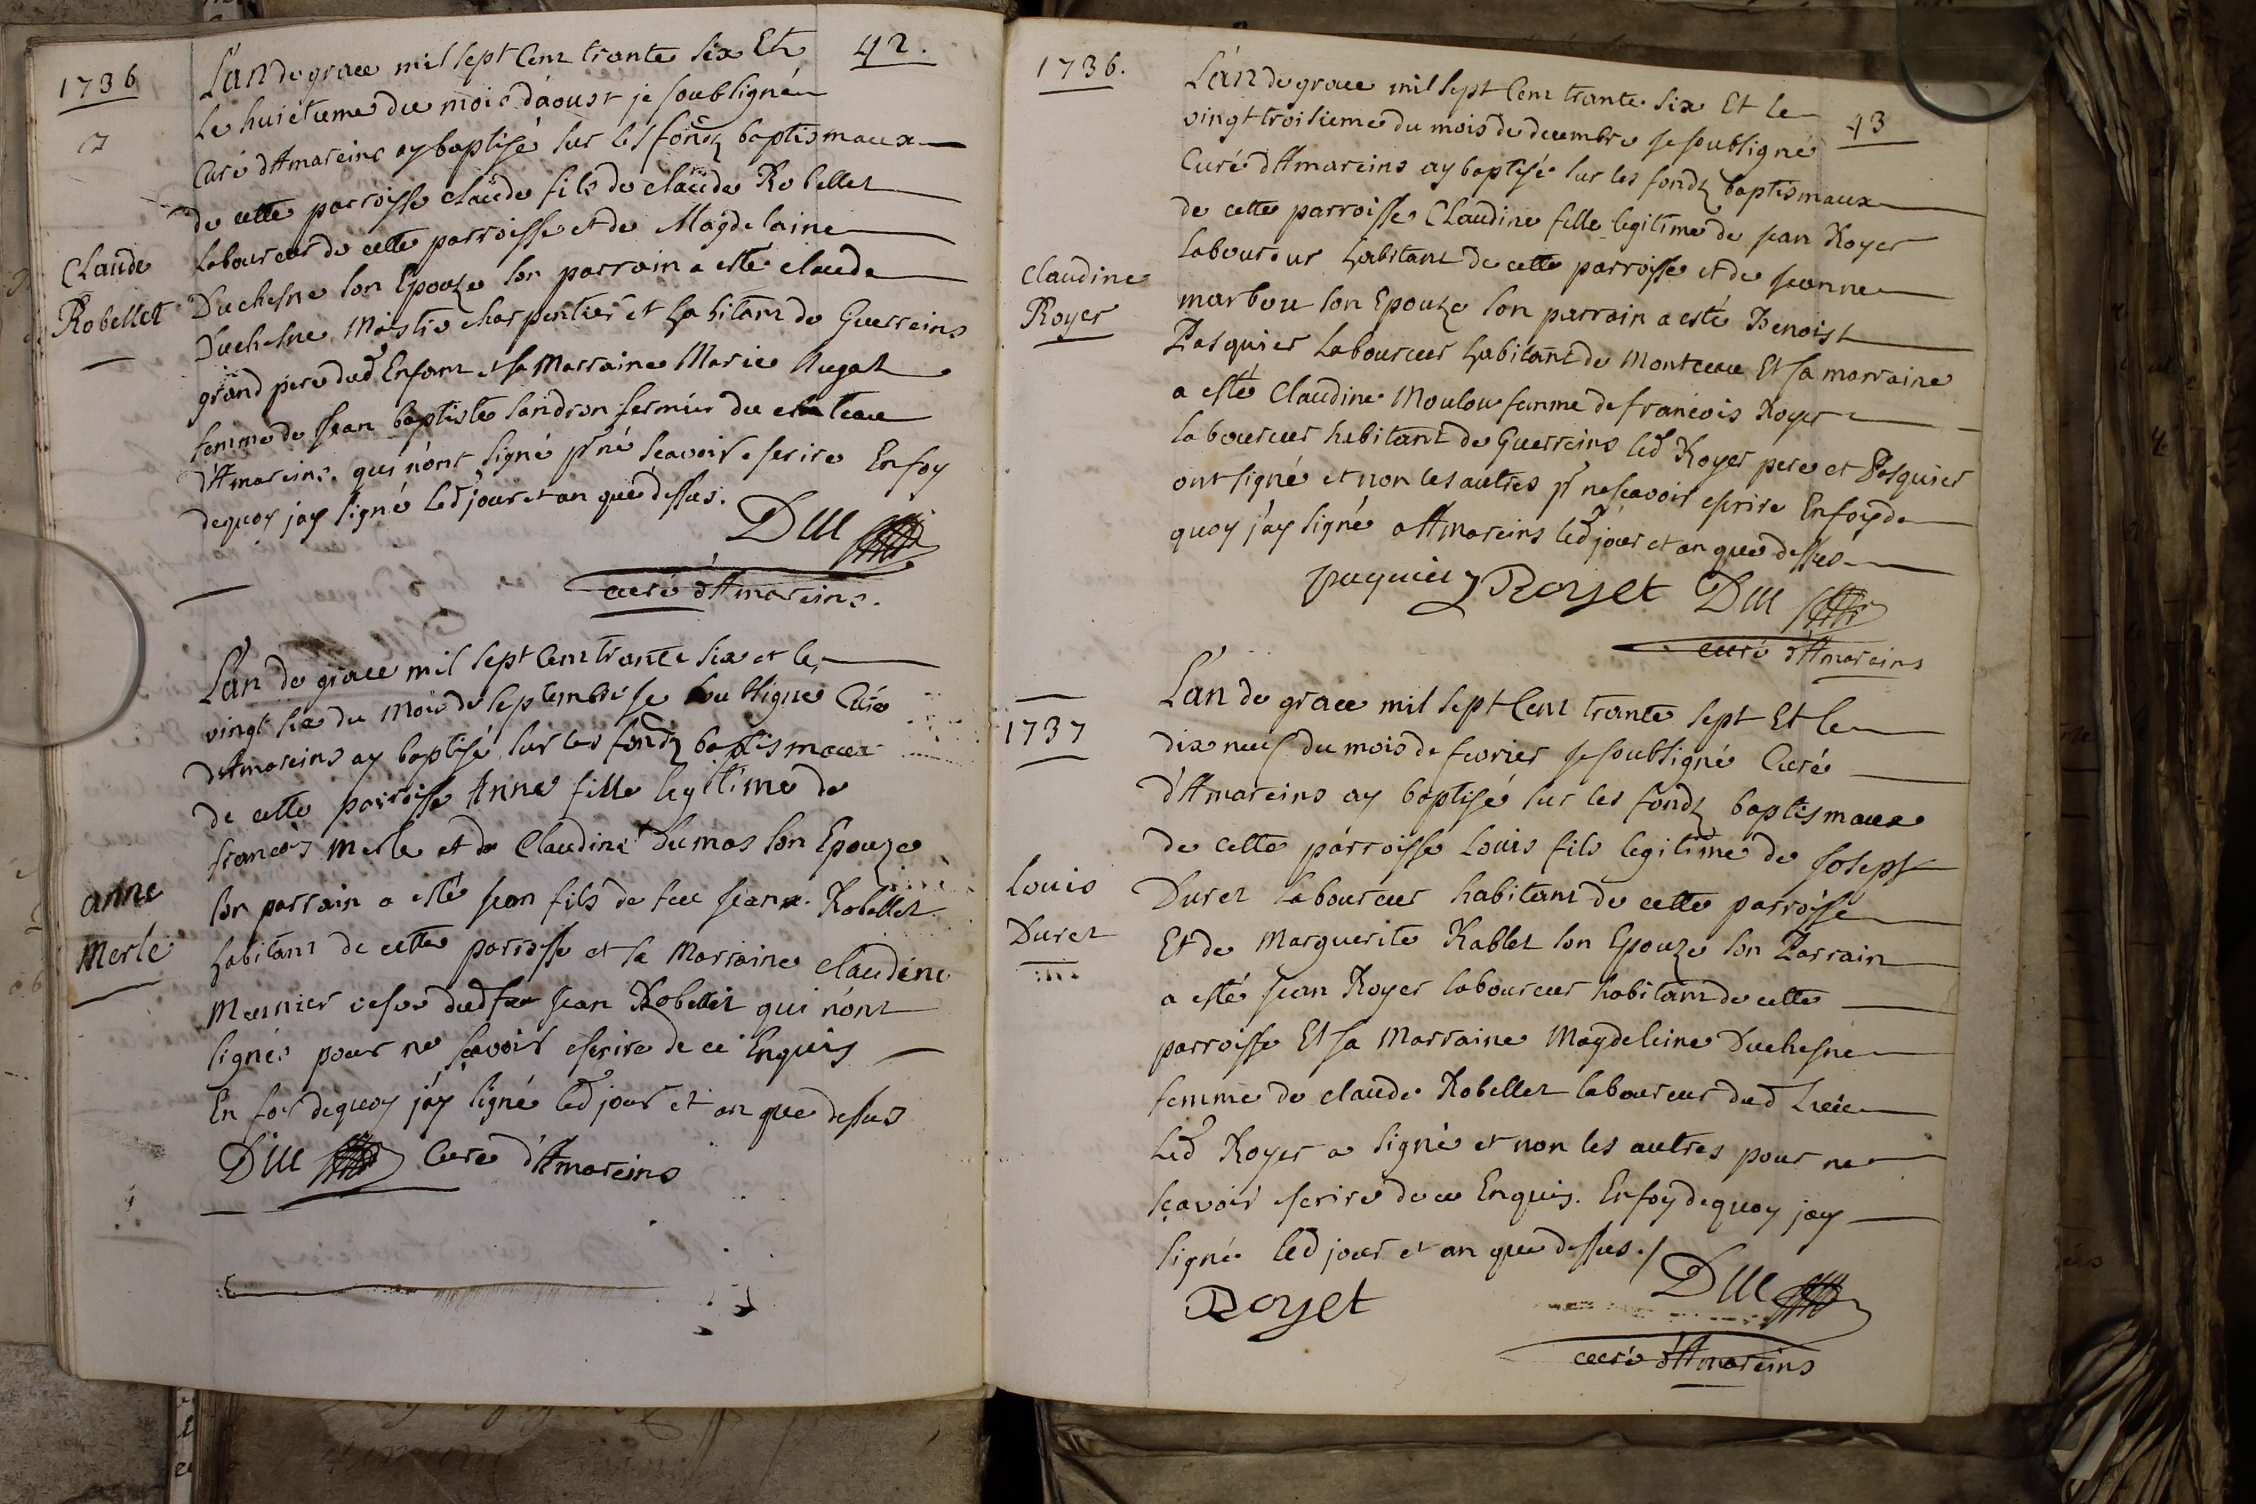 1736
42.
L'an de grace mil sept Cent trante six Et
Le huictieme du mois d'aoust je soubsigné
Curé d'Amareins ay baptisé sur les fondz baptismaux
de cette parroisse claude fils de claude Robellet
Laboureur de cette parroisse et de Magdelaine
Claude
Robellet
Duchesne son Epouze son parrain a esté claude
Duchesne Maistre charpentier et habitant de Guerreins
grand pere dud Enfant et sa Marraine Marie
femme de Jean baptiste landron fermier du chateau
d'Amareins. qui n'ont signé pr né sçavoir escrire En foy
dequoy j'ay signé led jour et an que dessus.
Duc
curé d'Amareins.
L'an de grace mil sept Cent trante six et le
vingt six du mois de septembre je soubsigné Curé
d'Amareins ay baptisé sur les fondz baptismaux
de cette parroisse Anne fille legitime de
francois Merle et de Claudine Dumas son Epouze
anne
Merle
son parrain a esté jean fils de feu jean Robellet
habitant de cette parroisse et sa Marraine claudine
Meunier vefve dud feu jean Robellet qui n'ont
signés pour ne sçavoir escrire de ce Enquis
En foy dequoy j'ay signé led jour et an que dessus
Duc Curé d'Amareins
1736.
43
L'an de grace mil sept Cent trante six Et le
vingt troisieme du mois de decembre je soubsigné
Curé d'Amareins ay baptisé sur les fondz baptismaux
de cette parroisse Claudine fille legitime de jean Royer
Laboureur habitant de cette parroisse et de jeanne
Claudine
Royer
marbou son Epouze son parrain a esté Benoist
Pasquier Laboureur habitant de Montceau Et sa marraine
a esté Claudine Moulou femme de francois Royer
laboureur habitant de Guerreins led Royer pere et Pasquier
ont signé et non les autres pr ne sçavoir escrire En foy de
quoy j'ay signé a Amareins led jour et an que dessus
paquier Royet Duc
curé d'Amareins
1737
L'an de grace mil sept Cent trante sept Et le
dix neuf du mois de fevrier je soubsigné Curé
d'Amareins ay baptisé sur les fondz baptismaux
de cette parroisse Louis fils legitime de Joseph
Louis
Duret
Duret laboureur habitant de cette parroisse
Et de Marguerite Rablet son Epouze son Parrain
a esté jean Royer laboureur habitant de cette
parroisse Et sa Marraine Magdeleine Duchesne
femme de claude Robellet laboureur dud Lieu
Led Royer a signé et non les autres pour ne
sçavoir escrire de ce Enquis. En foy dequoy jay
signé led jour et an que dessus./
Royet Duc
curé d'Amareins